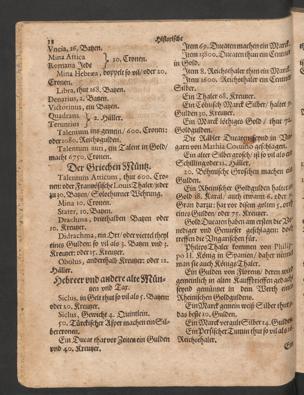 18
Historische
Vncia, 16. Batzen.
Mina Attica } 10. Cronen.
Romana Jede
Mina Hebræa, doppelt so vil/ oder 20.
Cronen.
Libra, thut 168. Batzen.
Denarius, 2. Batzen.
Victorinus, ein Batzen.
Quadrans } 2. Häller.
Teruncius
Talentum ins gemein/ 600. Cronen:
oder 1080. Reichsgulden.
Talentum auri, ein Talent in Gold/
macht 6750. Cronen.
Der Griechen Müntz.
Talentum Atticum, thut 600. Cro-
nen: oder Frantzösische Louis Thaler/ jeder
zu 30. Batzen/ Solothurner Wehrung.
Mina 10. Cronen.
Stater, 10. Batzen.
Drachma, drithalben Batzen oder
10. Kreutzer.
Didrachma, ein Ort/ oder viertel theyl
eines Gulden: so vil als 3. Batzen vnd 3.
Kreutzer: oder 15. Kreutzer.
Obolus, anderthalb Kreutzer: oder 12.
Häller.
Hebreer vnd andere alte Mün-
tzen vnd Tax.
Siclus, in Gelt thut so vil als 5. Batzen:
oder 20. Kreutzer.
Siclus, Gewicht 2. Quintlein.
50. Türckischer Asper machen ein Sil-
bercronen.
Ein Ducat thut vor Zeiten ein Gulden
vnd 40. Kreutzer.
Item 69. Ducaten machen ein Marck.
Item 13800. Ducaten thut ein Centner
in Gold.
Item 8. Reichsthaler thun ein Marck.
Item 1600. Reichsthaler ein Centner
Silber.
Ein Thaler 68. Kreutzer.
Ein Cölnisch Marck Silber/ haltet 9.
Gulden 30. Kreutzer.
Ein Marck löthiges Gold / thut 72.
Goldgulden.
Die Räbler Ducaten seynd in Vn-
garn von Mathia Corvino geschlagen.
Ein alter Silber grosch/ ist so vil als ein
Schilling oder 12. Häller.
20. Böhmische Groschen machen ein
Gulden.
Ein Rheinischer Goldgulden haltet an
Gold 18. Karat/ auch etwann 6. oder 7.
Gran darzu: hat vor disem golten 2. oft
eines oder 75. Kreutzer.
Gold Ducaten haben am ersten die Ve-
nediger vnd Genueser geschlagen: doch
treffen die Vngarischen für.
Philips Thaler kommen von Philip-
po II. König in Spanien/ daher nennet
man sie auch Königs Thaler.
Ein Gulden von Florentz/ deren wird
gemeinlich in alten Kauffbrieffen gedacht/
seynd gemünzt in dem Werth eines
Rheinischen Goldguldens.
Ein Marck gemein weiß Silber thut für
das beste 10. Gulden.
Ein Marck vergult Silber 14. Gulden
Ein Persischer Tuttin thut so vil als ein
Reichsthaler.
Ein